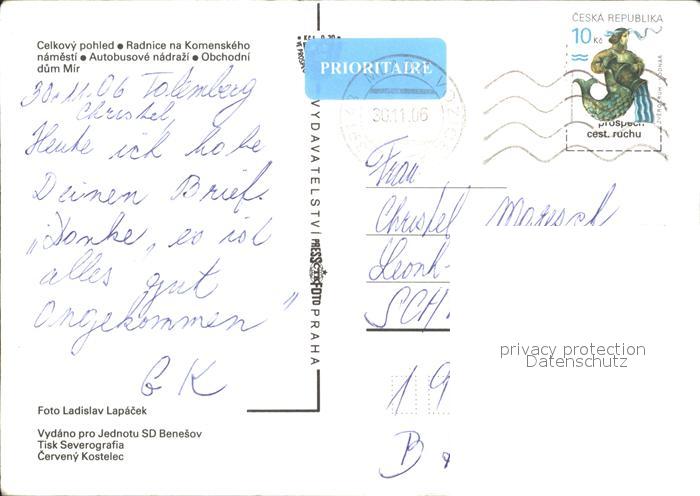 Celkový pohled ● Radnice na Komenského
náměstí ● Autobusové nádraží ● Obchodní
dům Mír
30.11.06 Talemberg
Christel,
Heute ich habe
Deinen Brief.
„Danke„ es ist
alles gut
angekommen"
G K
Foto Ladislav Lapáček
Vydáno pro Jednotu SD Benešov
Tisk Severografia
Červený Kostelec
VYDAVATELSTVÍ PRESSFOTO PRAHA
PRIORITAIRE
30.11.06
ČESKÁ REPUBLIKA
10 Kč
prospěch
cest. ruchu
Frau
Christel Maresch
Leonh-
SCH.
privacy protection
Datenschutz
19
B